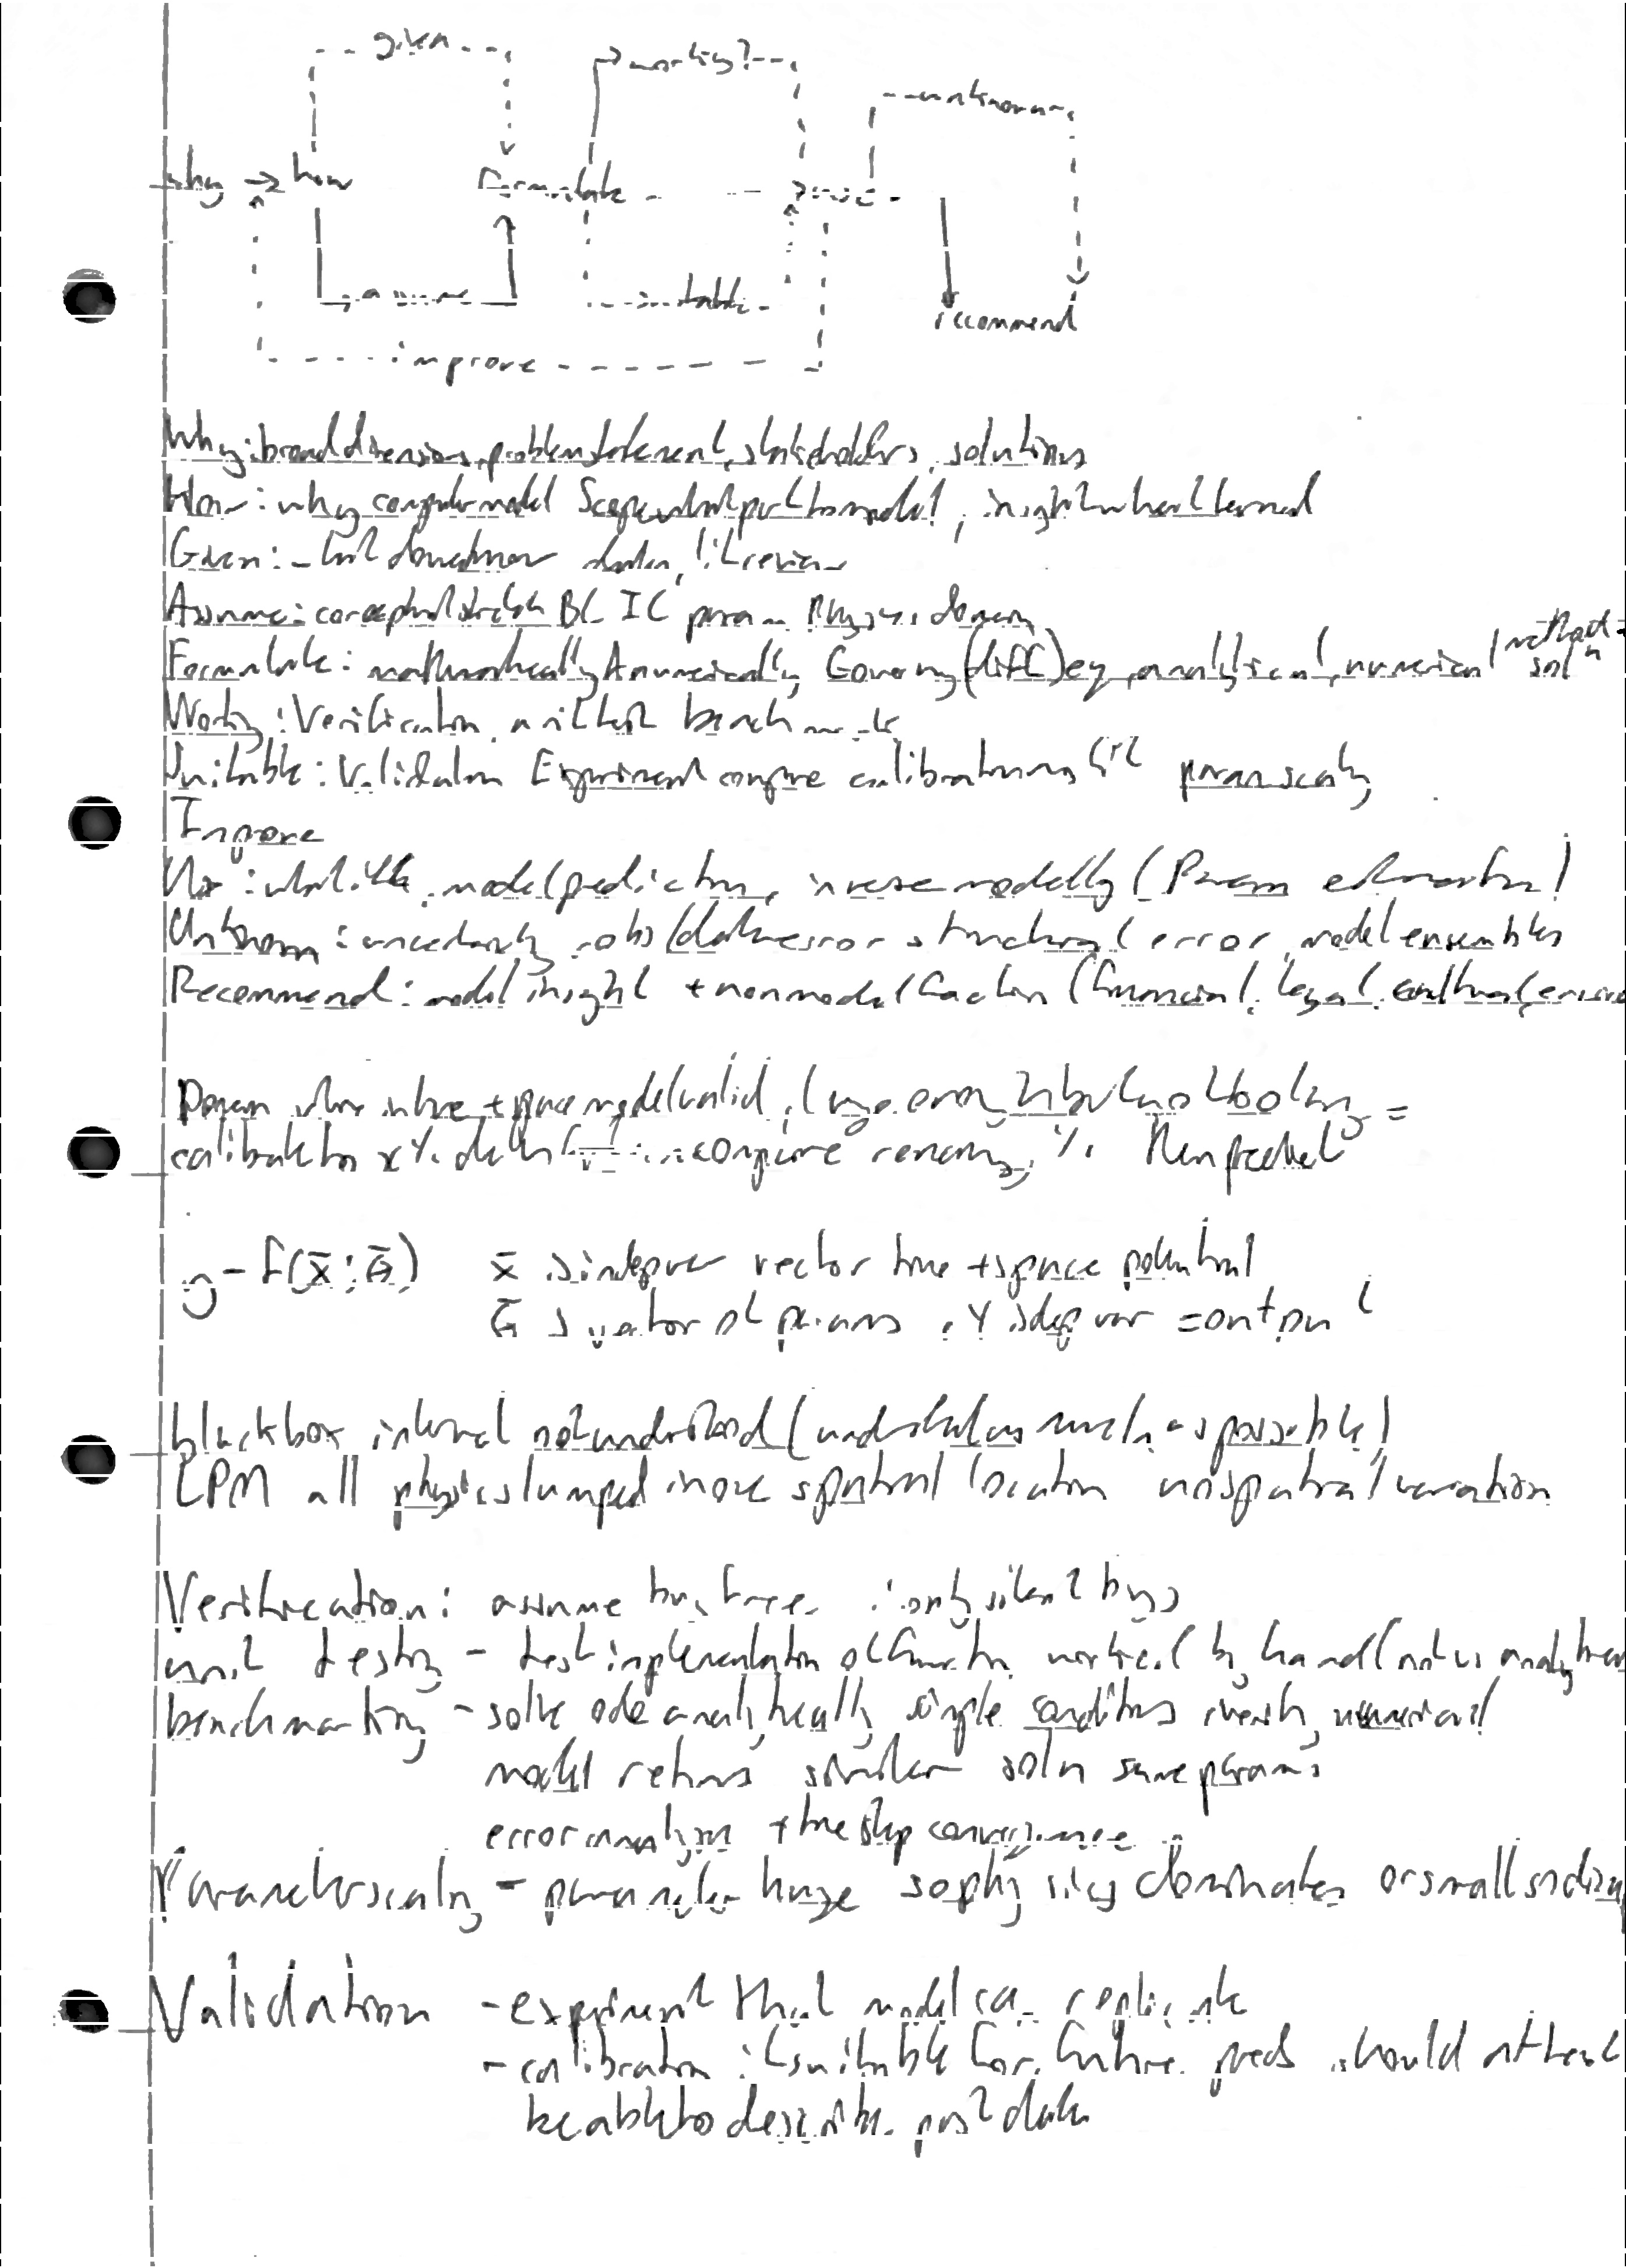 given
working?
unknown
why → how
formulate
use
assume
suitable
recommend
improve
Why: broad dimensions, problem statement, stakeholders, solutions
How: why computer model Scope what part to model, insight when learned
Given: data, lit review
Assume: conceptual sketch BC IC param physics domain
Formulate: mathematically numerically Governing (diff) eq, analytical, numerical method sol n
Working: Verification, unit test benchmark
Suitable: Validation Experiment compare calibration param scaling
Improve
Use: what ifs, model prediction, inverse modelling (Param estimation)
Unknown: uncertainty, obs/data error structural error, model ensembles
Recommend: model insight + nonmodel factors (financial, legal, cultural,
Domain where in time + space model valid, large enough but not too large =
calibrate to x% data compare remaining % then predict
y = f(x̄; θ̄) x̄ is indep var vector time + space potential
θ̄ is vector of params, y is dep var = output
blackbox internal not understood (understand as much as possible)
LPM all physics lumped in one spatial location no spatial variation
Verification: assume bug free, only silent bugs
unit testing - test implementation of function worked by hand (not vs analytical
benchmarking - solve ode analytically simple conditions verify numerical
model returns similar soln same params
error analysis + time step convergence
Parameter scaling - parameter huge so physics dominates or small so
Validation - experiment that model can replicate
- calibration if suitable for future preds should at least
be able to describe past data